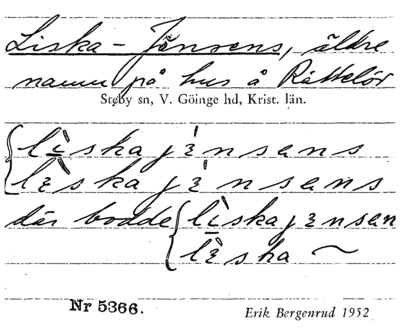 Liska-Jönsens, äldre
namn på hus å Rättelöv
Stoby sn, V. Göinge hd, Krist. län.
lìska jɛ̀nsɛns
lèska jɛ̀nsɛns
där bodde lìska jɛnsɛn
lèska ~
Nr 5366. Erik Bergenrud 1952